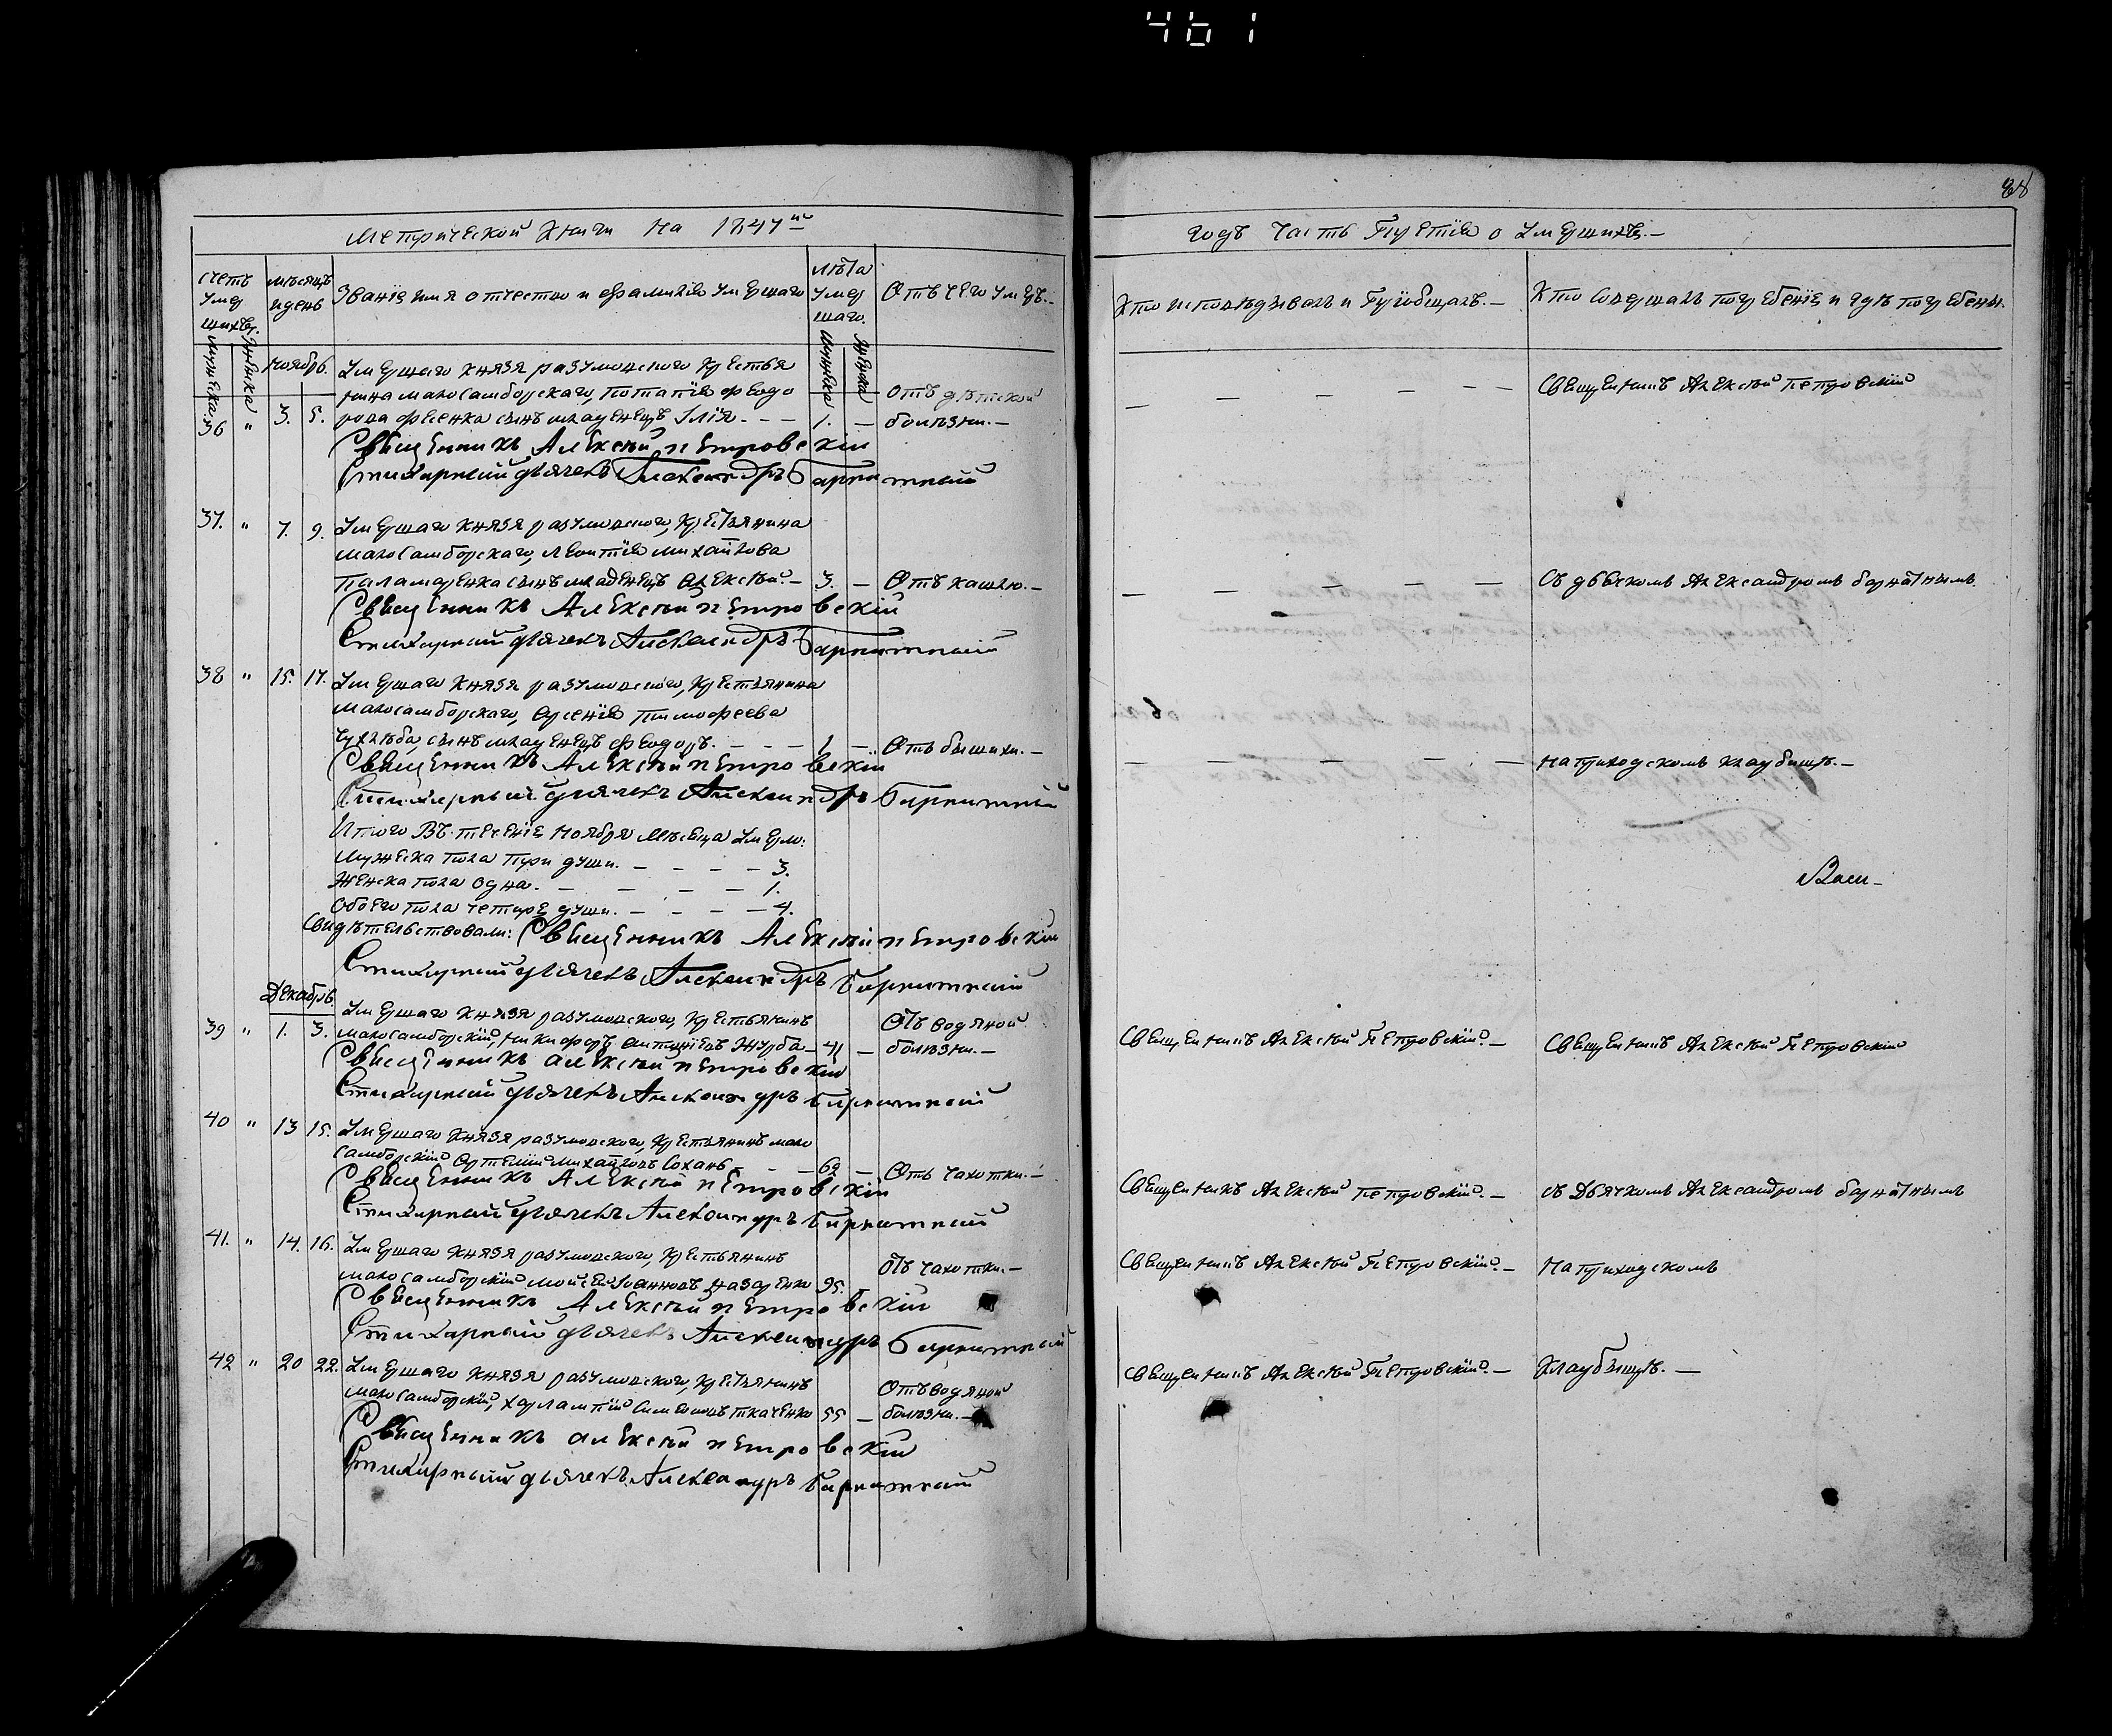 461
88
Метрической Книги на 1847й
годъ Часть Третія о Умершихъ.—
счетъ умершихъ.
Мужеска.
Женска
месяцъ и день
Званіе имя отчество и фамилія умершаго
лѣта умершаго.
Мужска
Женска
Отъ чего умеръ.—
Кто исповѣдывалъ и Пріобщалъ.—
Кто совершалъ погребеніе и гдѣ погребены.
Ноябрь.
Умершаго Князя разумовского Крестья
нина малосамборскаго, Потапія Феодо
36 " 3. 5. рова Фесенка сынъ младенецъ Илія. - - - 1. — Отъ дѣтской
болѣзни.—
Священникъ Алексѣй Петровскій
Стихарный дьячекъ Александръ Барнатный
— — — — — —
Священникъ Алексѣй Петровскій
37. " 7. 9. Умершаго Князя разумовского, Крестьянина
малосамборскаго, Леонтія Михайлова
Паламаренка сынъ младенецъ Алексѣй.— 3. — Отъ кашлю.—
Священникъ Алексѣй Петровскій
Стихарный дьячекъ Александръ Барнатный
— — — — —
съ дьячкомъ Александромъ барнатнымъ
38 " 15. 17. Умершаго Князя разумовского, Крестьянина
малосамборскаго, Арсенія Тимофеева
Чухлѣба, сынъ младенецъ Феодоръ. — — — 1. — Отъ бышихи.—
Священникъ Алексѣй Петровскій
Стихарный дьячекъ Александръ Барнатный
— — — — — —
на приходскомъ кладбищѣ.—
Итого Въ теченіе Ноября Месяца умерло:
Мужеска пола три души. — — — — 3.
Женска пола одна. — — — — 1.
Обоего пола четыре души. — — — — 4.
Васи-
Свидѣтельствовали: Священникъ Алексѣй Петровскій
Стихарный дьячекъ Александръ Барнатный
Декабрь.
Умершаго Князя разумовского, Крестьянинъ
39 " 1. 3. малосамборскій, Никифоръ Антоніевъ Журба— 41 — Отъ водяной
болѣзни.—
Священникъ Алексѣй Петровскій
Стихарный дьячекъ Александръ Барнатный
Священникъ Алексѣй Петровскій.—
Священникъ Алексѣй Петровскій
40 " 13 15. Умершаго Князя разумовского, Крестьянинъ мало
самборскій Артемій Михайловъ Сохань — — — 62 — Отъ чахотки.—
Священникъ Алексѣй Петровскій
Стихарный дьячекъ Александръ Барнатный
Священникъ Алексѣй Петровскій.—
съ Дьячкомъ Александромъ барнатнымъ
41. " 14. 16. Умершаго Князя разумовского, Крестьянинъ
малосамборскій Мойсей Іоанновъ Назаренко 95. Отъ чахотки.—
Священникъ Алексѣй Петровскій
Стихарный дьячекъ Александръ Барнатный
Священникъ Алексѣй Петровскій.—
На приходскомъ
42 " 20 22. Умершаго Князя разумовского, Крестьянинъ
малосамборскій, Харлампій Симеоновъ Ткаченко 55 — Отъ водяной
болѣзни.—
Священникъ Алексѣй Петровскій
Стихарный дьячекъ Александръ Барнатный
Священникъ Алексѣй Петровскій.—
Кладбищѣ.—